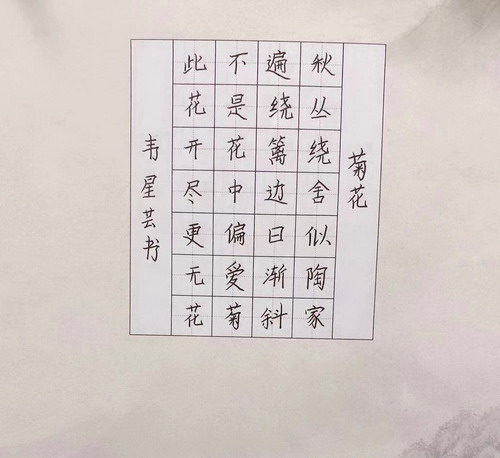 菊花
秋丛绕舍似陶家
遍绕篱边日渐斜
不是花中偏爱菊
此花开尽更无花
韦星芸书